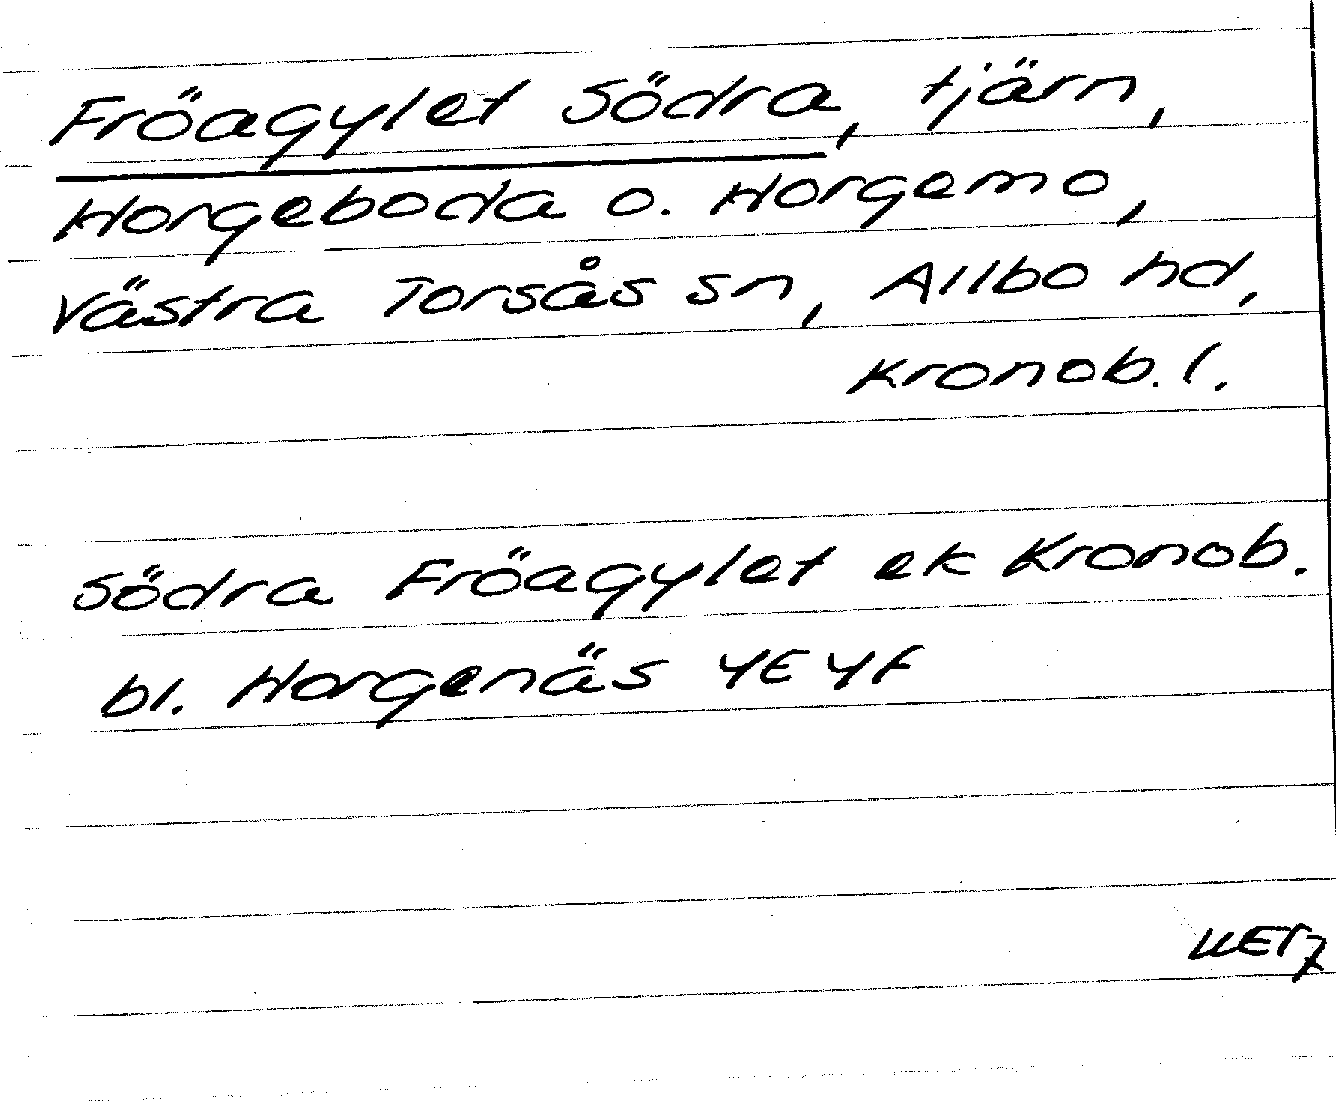 Fröagylet Södra, tjärn,
Horgeboda o. Horgemo,
Västra Torsås sn, Allbo hd,
Kronob. l.
Södra Fröagylet ek Kronob.
bl. Horgenäs 4E4f